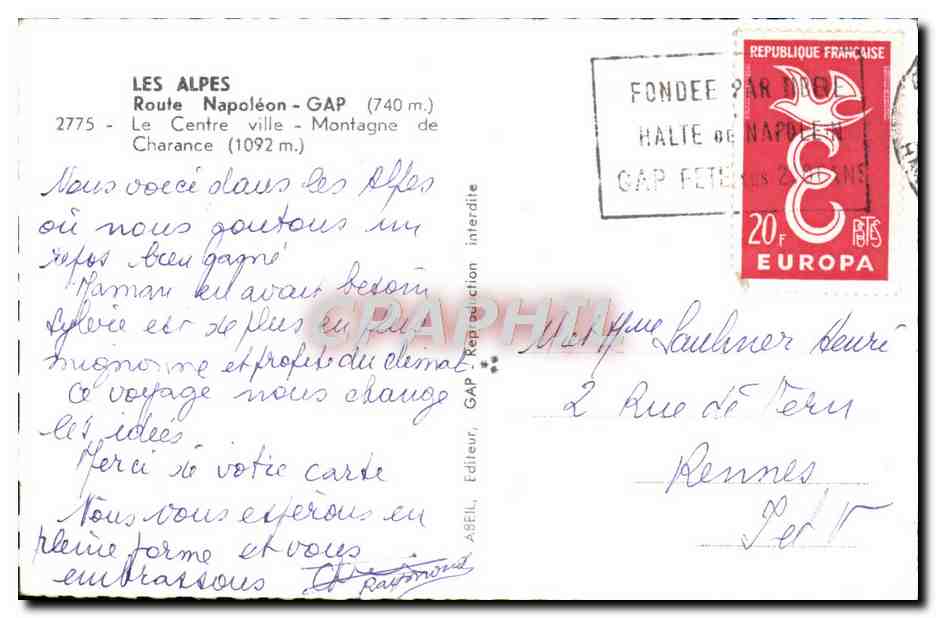 LES ALPES
Route Napoléon - GAP (740 m.)
2775 - Le Centre ville - Montagne de
Charance (1092 m.)
Nous voici dans les Alpes
où nous goutons un
repos bien gagné
Maman en avait besoin
Sylvie est de plus en plus
mignonne et profite du climat.
Ce voyage nous change
les idées
Merci de votre carte
Nous vous espérons en
pleine forme et vous
embrassons
Raymond
ABEIL, Editeur, GAP Reproduction interdite
CPAPHIL
FONDEE PAR
HALTE DE NAPOLEON
GAP FETE ses ANS
REPUBLIQUE FRANÇAISE
20F
POSTES
EUROPA
M et Mme Henri
2 Rue de Vern
Rennes
I et V